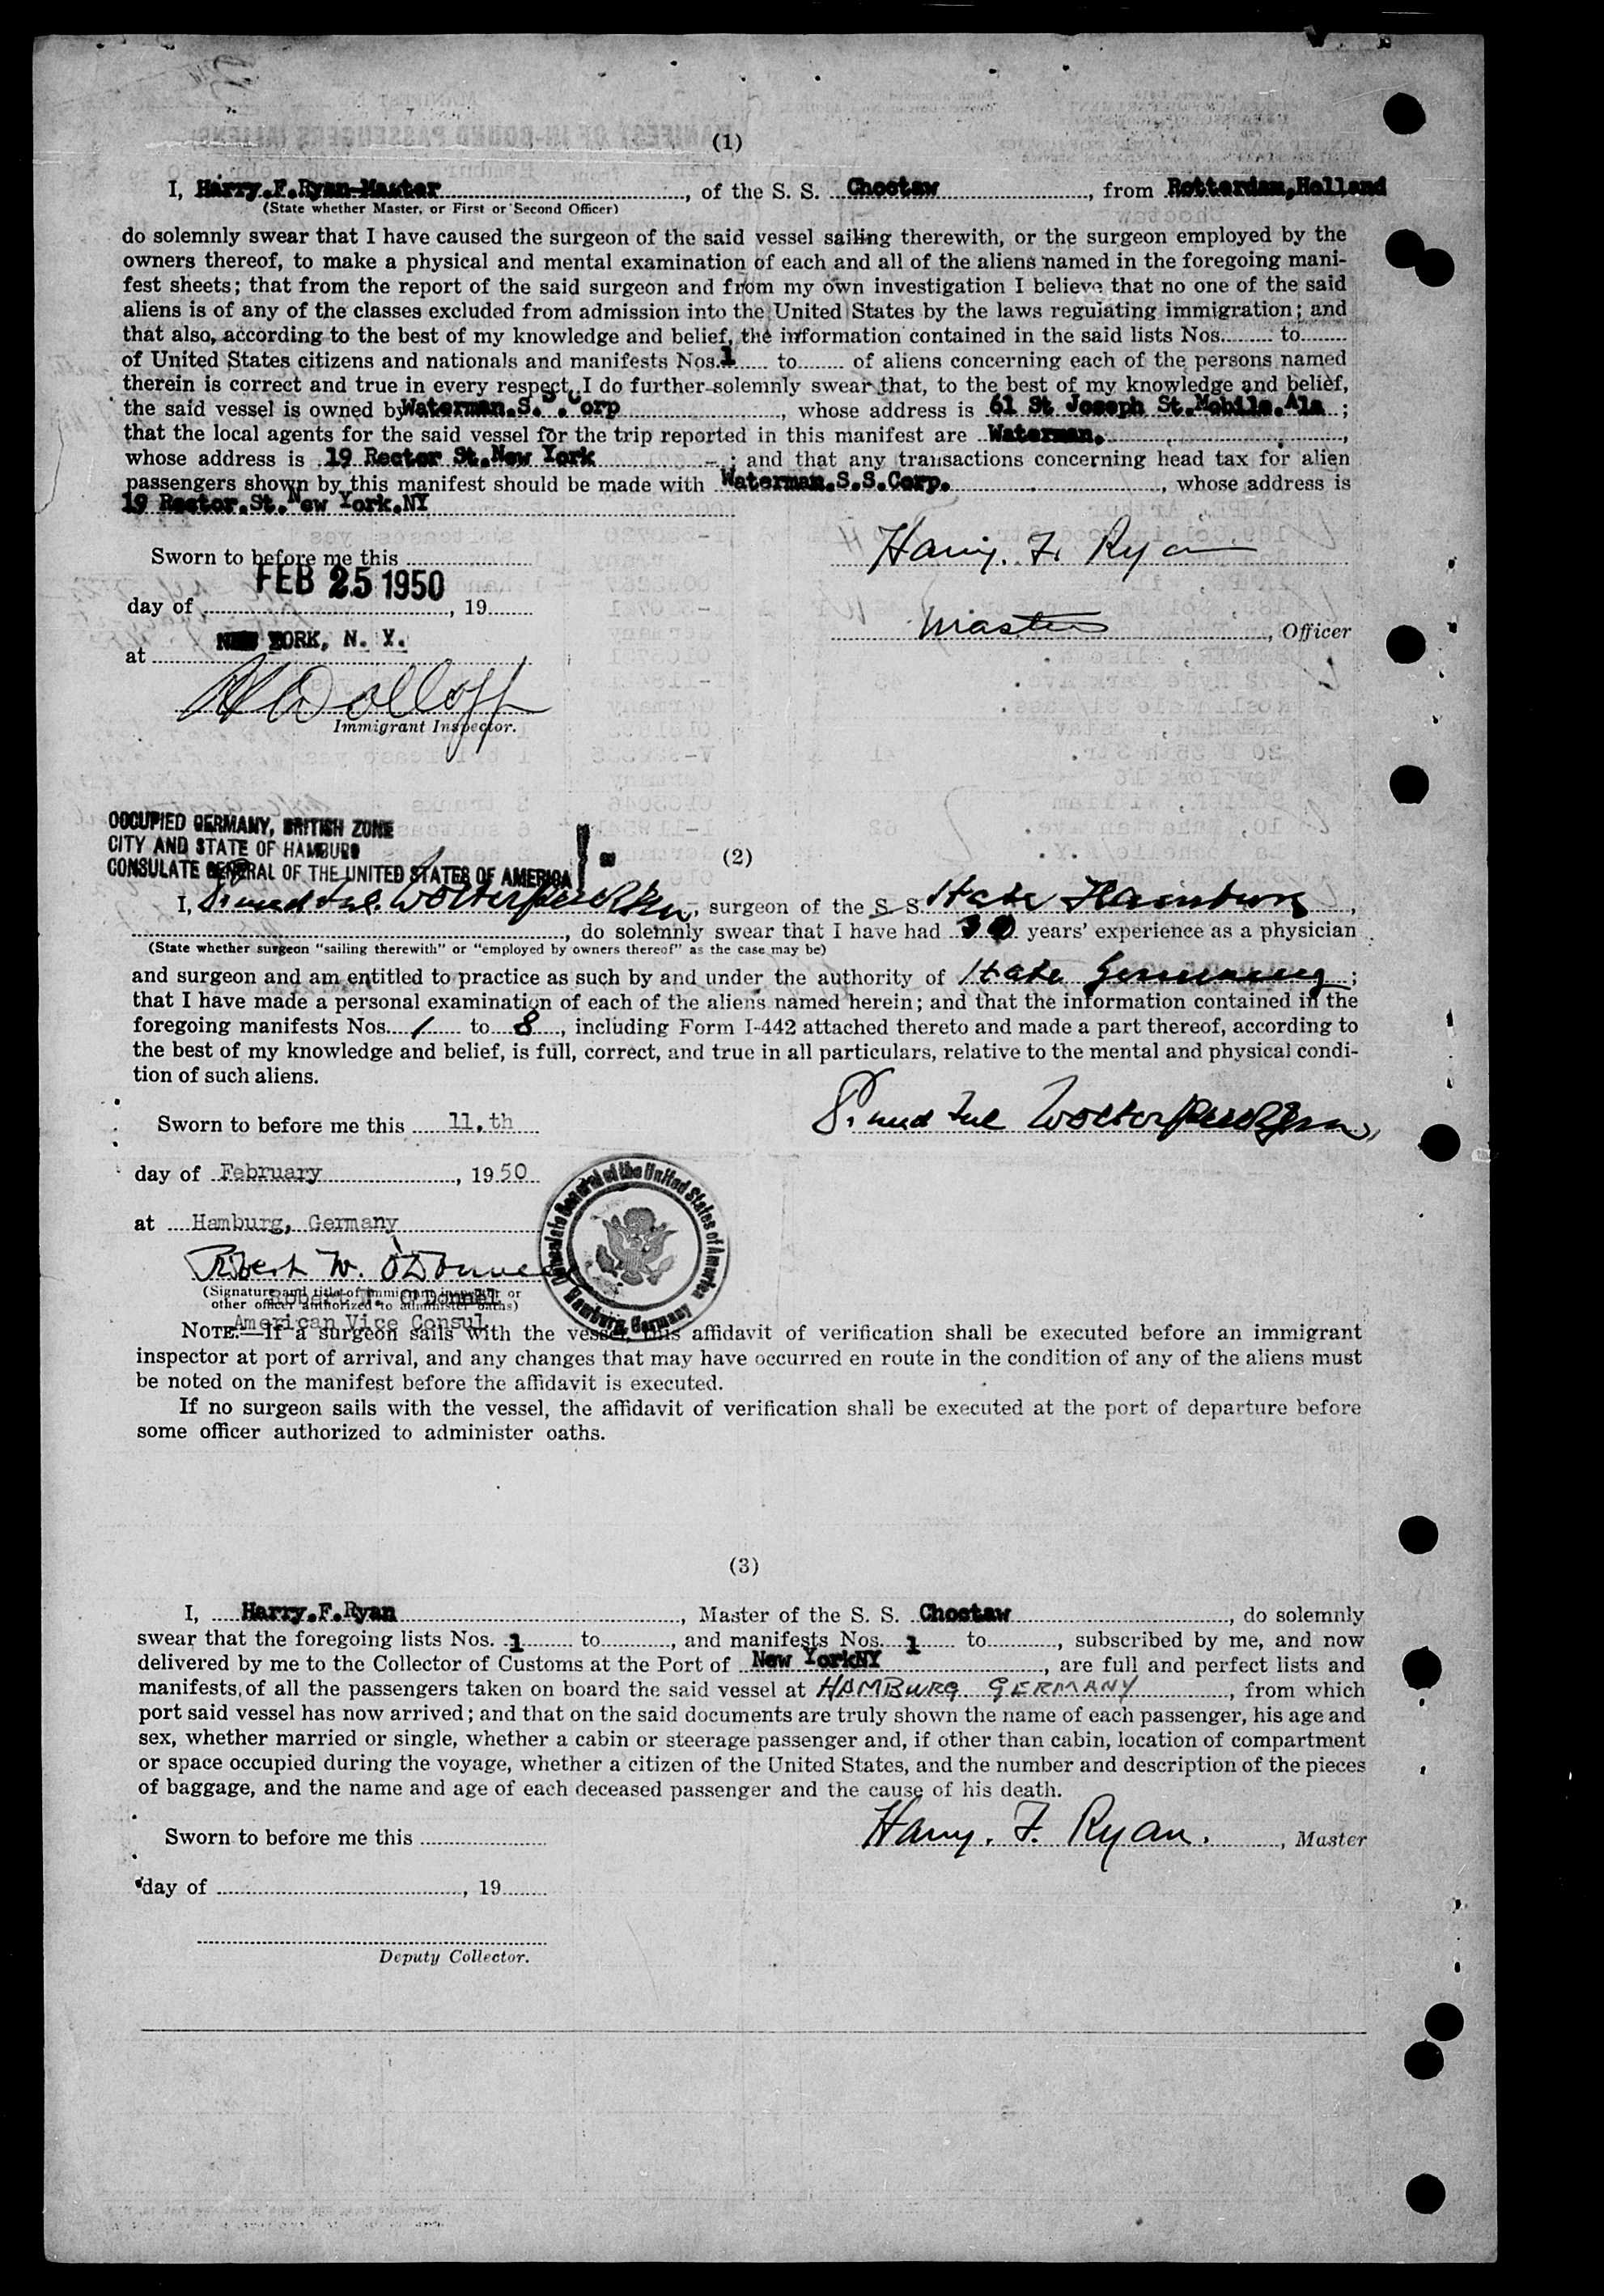 (1)
I, Harry.F.Ryan-Master, of the S. S. Choctaw, from Rotterdam,Holland
(State whether Master, or First or Second Officer)
do solemnly swear that I have caused the surgeon of the said vessel sailing therewith, or the surgeon employed by the
owners thereof, to make a physical and mental examination of each and all of the aliens named in the foregoing mani-
fest sheets; that from the report of the said surgeon and from my own investigation I believe that no one of the said
aliens is of any of the classes excluded from admission into the United States by the laws regulating immigration; and
that also, according to the best of my knowledge and belief, the information contained in the said lists Nos. to
of United States citizens and nationals and manifests Nos. 1 to of aliens concerning each of the persons named
therein is correct and true in every respect. I do further solemnly swear that, to the best of my knowledge and belief,
the said vessel is owned by Waterman.S.S.Corp, whose address is 61 St Joseph St.Mobile.Ala ;
that the local agents for the said vessel for the trip reported in this manifest are Waterman. ,
whose address is 19 Rector St.New York ; and that any transactions concerning head tax for alien
passengers shown by this manifest should be made with Waterman.S.S.Corp. , whose address is
19 Rector.St.New York.NY
Sworn to before me this
Harry. F. Ryan
FEB 25 1950
day of , 19
Master , Officer
NEW YORK, N. Y.
at
Immigrant Inspector.
OCCUPIED GERMANY, BRITISH ZONE
CITY AND STATE OF HAMBURG
CONSULATE GENERAL OF THE UNITED STATES OF AMERICA
(2)
I, , surgeon of the S. S. State Hamburg ,
, do solemnly swear that I have had 30 years' experience as a physician
(State whether surgeon "sailing therewith" or "employed by owners thereof" as the case may be)
and surgeon and am entitled to practice as such by and under the authority of State Germany ;
that I have made a personal examination of each of the aliens named herein; and that the information contained in the
foregoing manifests Nos. 1 to 8, including Form I-442 attached thereto and made a part thereof, according to
the best of my knowledge and belief, is full, correct, and true in all particulars, relative to the mental and physical condi-
tion of such aliens.
Sworn to before me this 11.th
day of February , 1950
at Hamburg, Germany
Robert W. O'Donnel
(Signature and title of immigrant inspector or
other officer authorized to administer oaths)
Robert W. O'Donnel
American Vice Consul
Consulate General of the United States of America
Hamburg, Germany
NOTE.—If a surgeon sails with the vessel, this affidavit of verification shall be executed before an immigrant
inspector at port of arrival, and any changes that may have occurred en route in the condition of any of the aliens must
be noted on the manifest before the affidavit is executed.
If no surgeon sails with the vessel, the affidavit of verification shall be executed at the port of departure before
some officer authorized to administer oaths.
(3)
I, Harry.F.Ryan , Master of the S. S. Choctaw , do solemnly
swear that the foregoing lists Nos. 1 to , and manifests Nos. 1 to , subscribed by me, and now
delivered by me to the Collector of Customs at the Port of New YorkNY , are full and perfect lists and
manifests, of all the passengers taken on board the said vessel at HAMBURG GERMANY , from which
port said vessel has now arrived; and that on the said documents are truly shown the name of each passenger, his age and
sex, whether married or single, whether a cabin or steerage passenger and, if other than cabin, location of compartment
or space occupied during the voyage, whether a citizen of the United States, and the number and description of the pieces
of baggage, and the name and age of each deceased passenger and the cause of his death.
Sworn to before me this
Harry. F. Ryan. , Master
day of , 19
Deputy Collector.